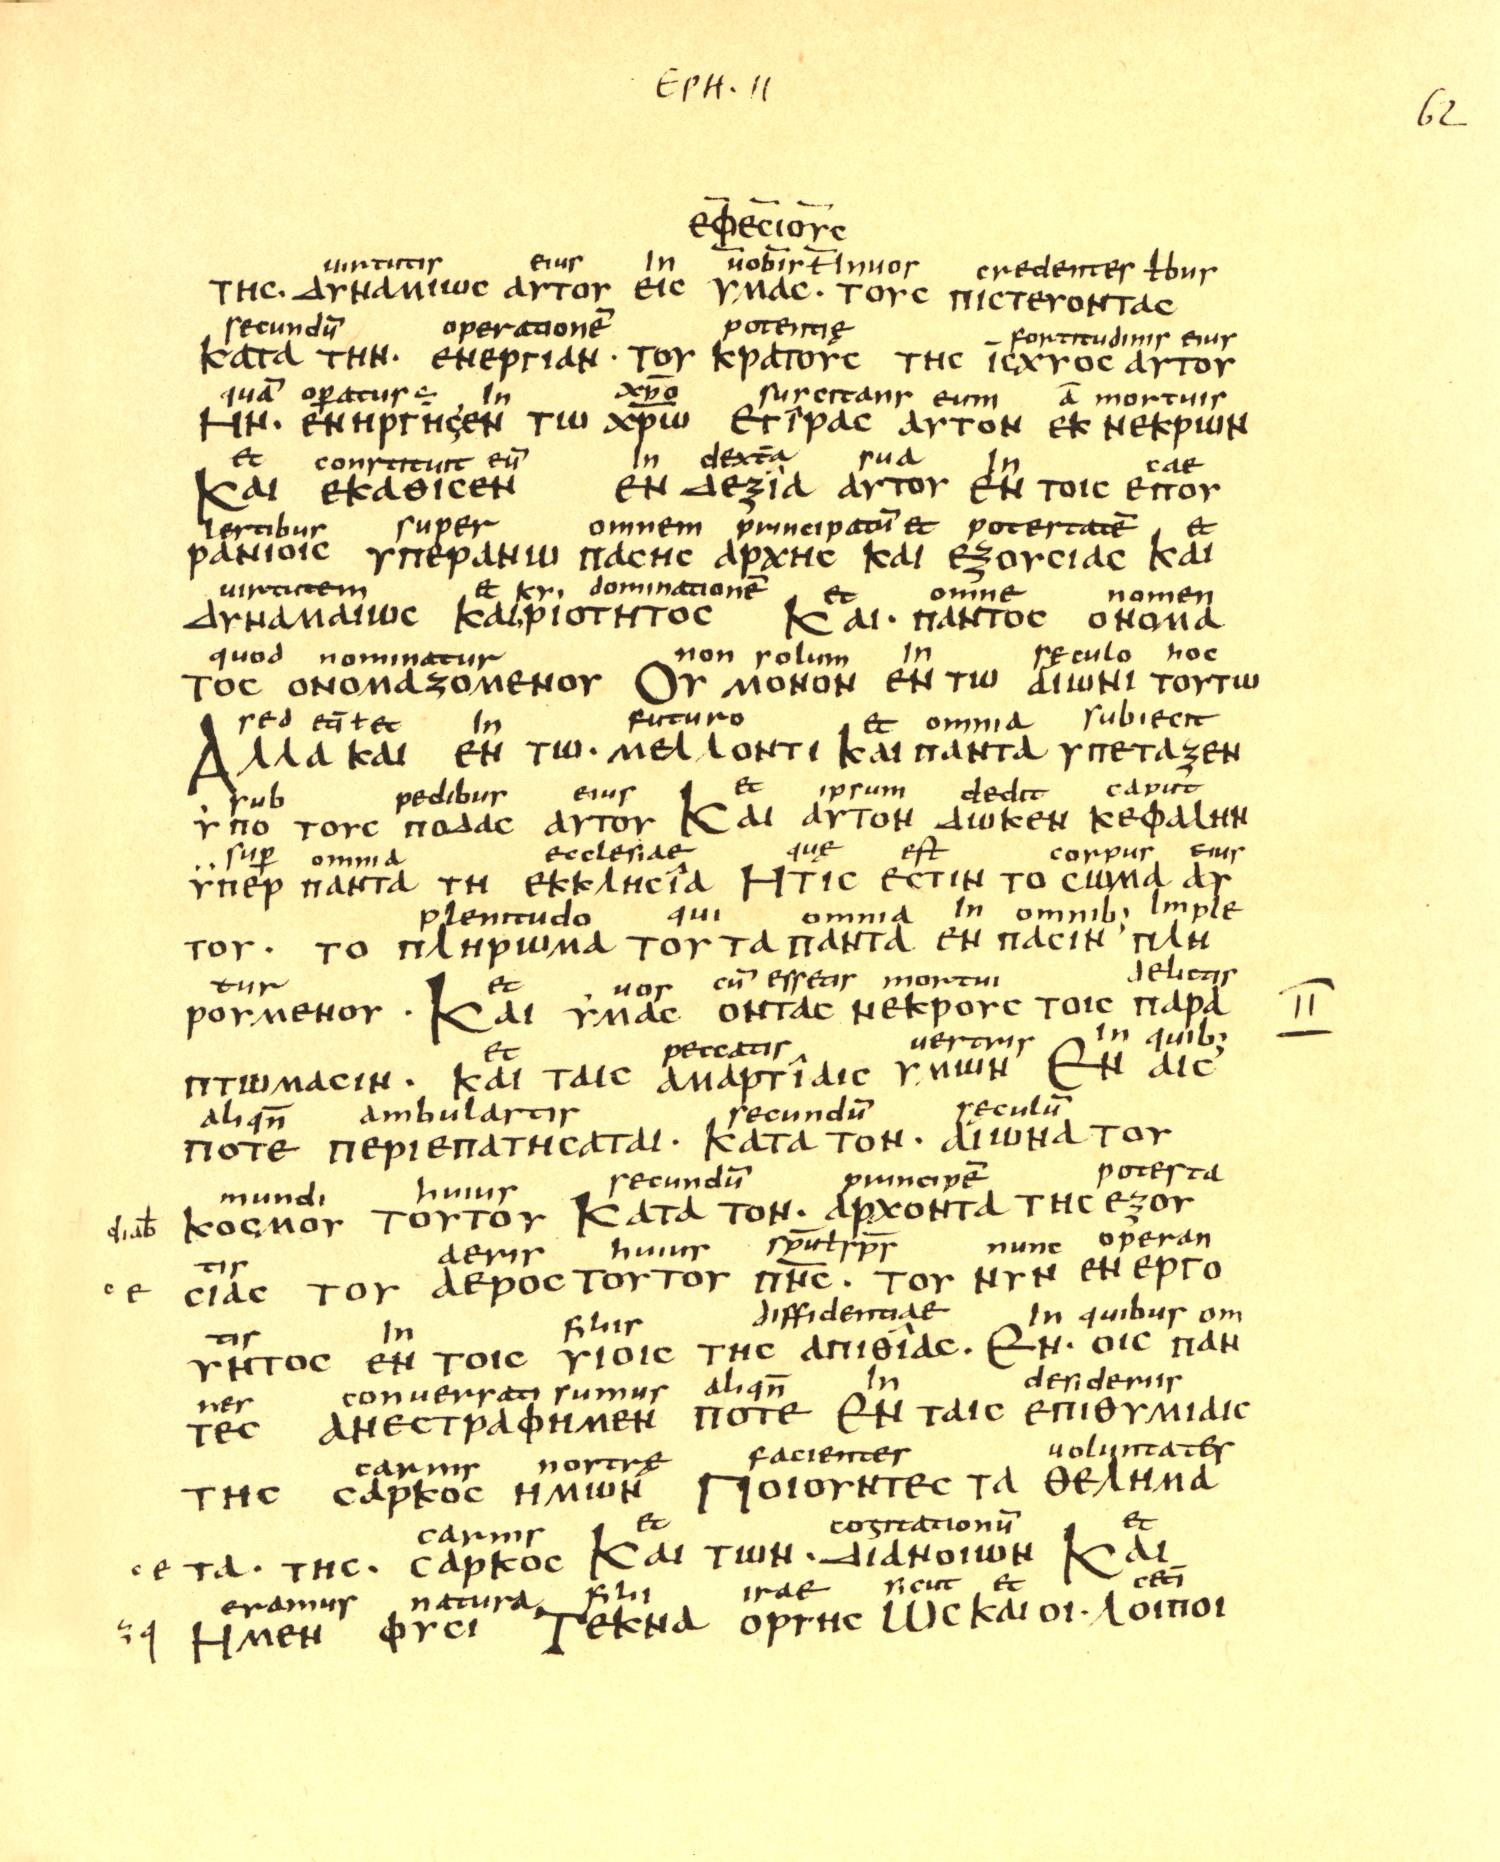 EPH. II
62
εφεσιους
uirtutis eius In uobis ł Inuos credentes ł bus
της. Δυναμιως αυτου εις υμας. τους πιστευοντας
secundū operationē potentię fortitudinis eius
κατα την. ενεργιαν. του κρατους της ισχυος αυτου
quā opatus ÷ In xp̄o suscitans eum ā mortuis
Ην. ενηργησεν τω χρω Εγιρας αυτον εκ νεκρων
et constituit eū In dextā sua In cae
Και εκαθισεν εν Δεξια αυτου εν τοις επου
lestibus super omnem principatū et potestatē et
ρανιοις υπερανω πασης αρχης και εξουσιας και
uirtutem et kyi dominationē et omne nomen
Δυναμαιως Καιριοτητος Και. παντος ονομα
quod nominatur non solum In sęculo hoc
τος ονομαζομενου Ου μονον εν τω αιωνι τουτω
sed etī ł et In futuro et omnia subiecit
Αλλα και εν τω. μελλοντι και παντα υπεταξεν
sub pedibus eius et ipsum dedit caput
υπο τους ποδας αυτου Και αυτον Δωκεν κεφαλην
sup omnia ecclesiae quę est corpus eius
υπερ παντα τη εκκλησια Ητις εστιν το σωμα αυ
plenitudo qui omnia In omnib; Imple
του. το πληρωμα του τα παντα εν πασιν πλη
tur et uos cū essetis mortui delictis
ρουμενου. Και υμας οντας νεκρους τοις παρα II
et peccatis uestris In quib;
πτωμασιν. και ταις αμαρτιαις υμων Εν αις
aliqn̄ ambulastis secundū seculū
ποτε περιεπατησαται. κατα τον. αιωνα του
mundi huius secundū principē potesta
diab κοσμου τουτου Κατα τον. αρχοντα της εξου
tis aeris huius sp̄u ł sp̄s nunc operan
c e σιας του αερος τουτου πν̄ς. του νυν ενεργο
tis In filiis diffidentiae In quibus om
υντος εν τοις υιοις της απιθιας. Εν. οις παν
nes conuersati sumus aliqn̄ In desideriis
τες ανεστραφημεν ποτε Εν ταις επιθυμιαις
carnis nostrę facientes uoluntates
της σαρκος ημων Ποιουντες τα θελημα
carnis et cogitationū et
c e τα. της. σαρκος Και των. διανοιων Και
eramus natura filii irae sicut et cetī
ζq Ημεν φυσι Τεκνα οργης Ως και οι. λοιποι